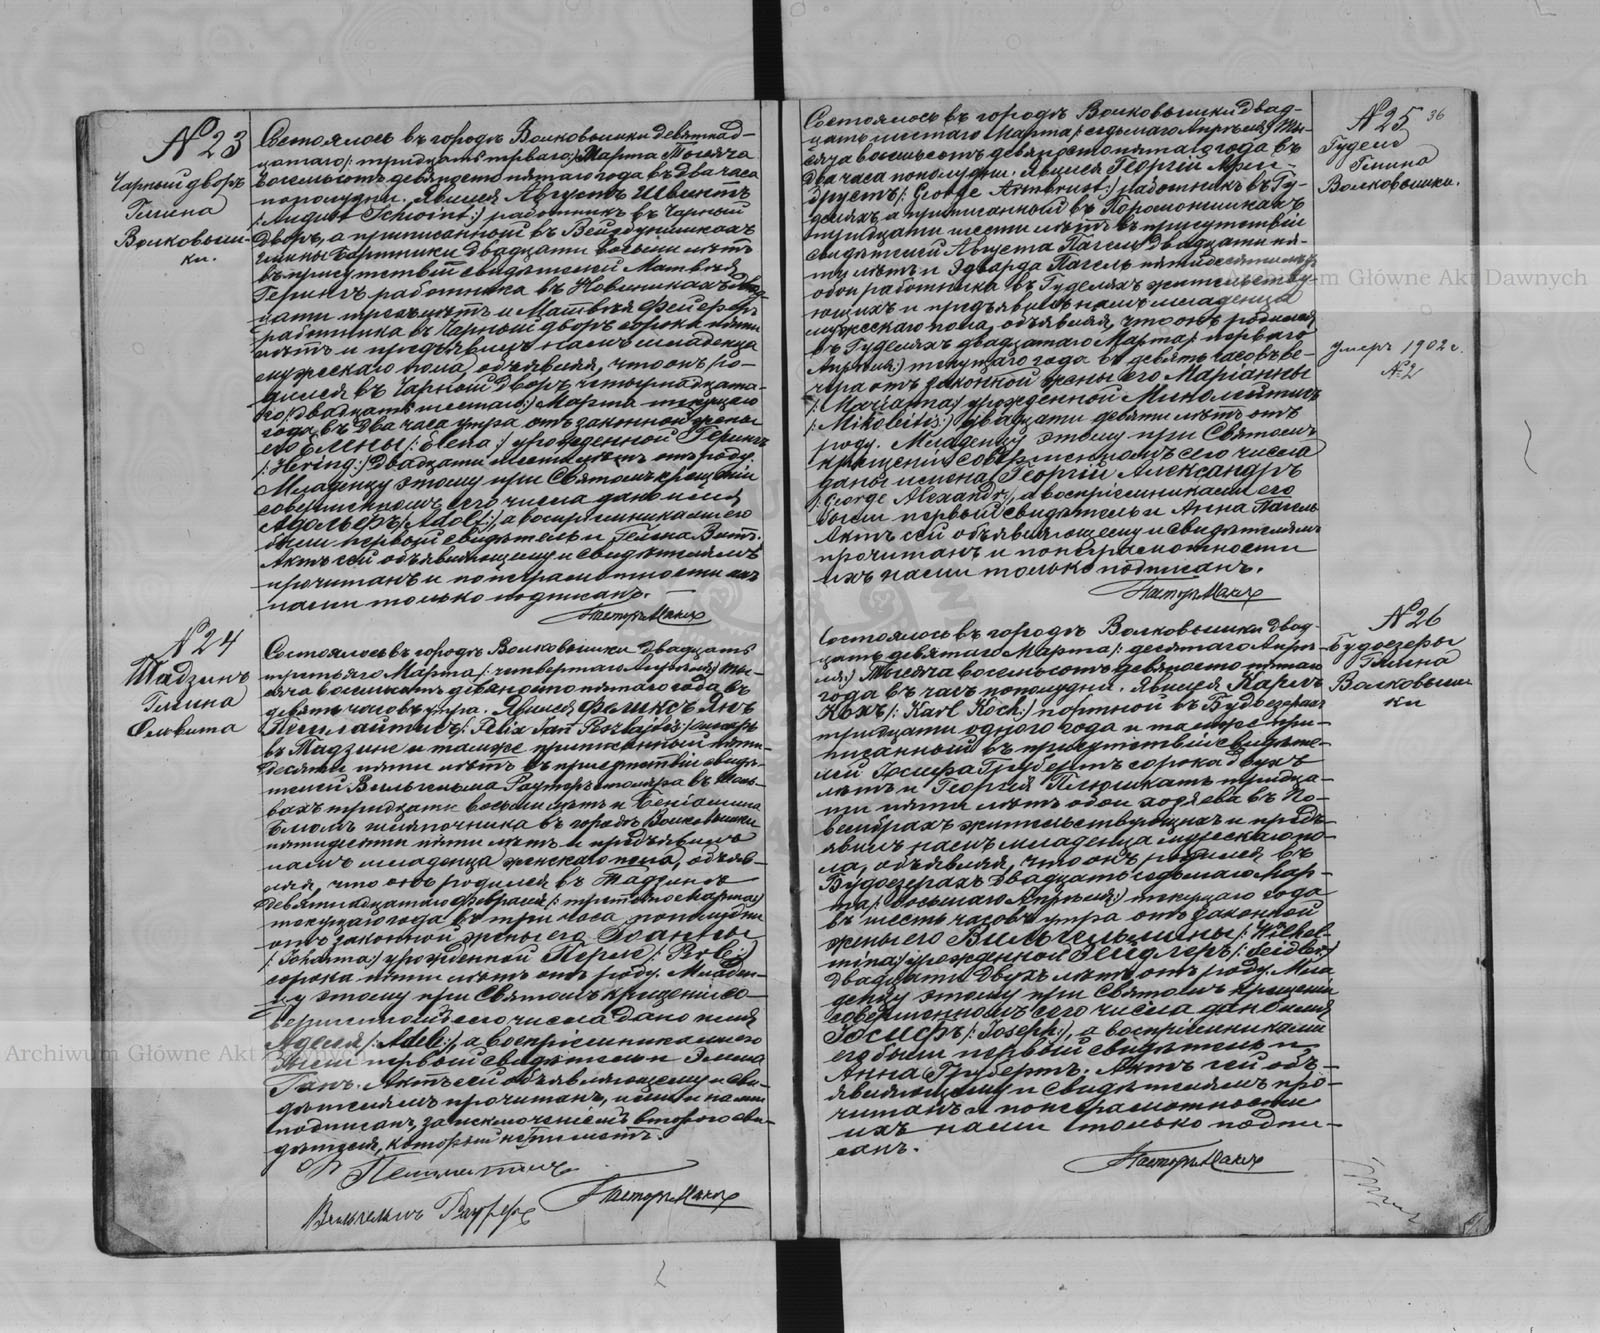 № 23
Чарный дворъ
Гмина
Волковыш-
ки.
Состоялось въ городѣ Волковышки девятнад-
цатаго /: тридцать перваго:/ Марта Тысяча
восемьсотъ девяносто пятаго года въ два часа
пополудни. Явился Августъ Швинтъ
/: August Schwint:/ работникъ въ Чарный
дворъ, а приписанный въ
гмины Бартники двадцати восьми лѣтъ
въ присутствіи свидѣтелей Матвѣя
Герингъ работника въ Новиникахъ двад-
цати трехъ лѣтъ и Матвѣя Фейерберъ
работника въ Чарный дворъ сорока пяти
лѣтъ и предъявилъ намъ младенца
мужескаго пола, объявляя, что онъ ро-
дился въ Чарный дворъ четырнадцата-
го /: двадцать шестаго:/ Марта текущего
года въ два часа утра отъ законной жены
его Елены /: Elena :/ урожденной Герингъ
/: Hering:/ двадцати шести лѣтъ отъ роду.
Младенцу этому при Святомъ крещеніи
совершенномъ сего числа дано имя
Адольфъ /: Adolf:/, а воспріемниками его
были первый свидѣтель и Гелена Витъ.
Актъ сей объявляющему и свидѣтелямъ
прочитанъ и по неграмотности ихъ
нами только подписанъ.
Пасторъ
№ 24
Тадзинъ
Гмина
Ольвита
Состоялось въ городѣ Волковышки двадцать
третьяго Марта /: четвертаго Апрѣля:/ Ты-
сяча восемьсотъ девяносто пятаго года въ
девять часовъ утра. Явился Феликсъ Янъ
въ Тадзинѣ и тамже приписанный пяти-
десяти пяти лѣтъ въ присутствіи свидѣ-
телей Вильгельма Раутеръ столяра въ
вахъ тридцати восьми лѣтъ и Беніамина
Блюмъ шляпочника въ городѣ Волковышки
пятидесяти пяти лѣтъ и предъявилъ
намъ младенца женскаго пола, объяв-
ляя, что онъ родился въ Тадзинѣ
девятнадцатаго Февраля /: третьяго Марта:/
текущаго года въ три часа пополудни
отъ законной жены его Іоанны
/: Johanna:/ урожденной Перле /: Perle:/
сорока пяти лѣтъ отъ роду. Младен-
цу этому при Святомъ крещеніи со-
вершенномъ сего числа дано имя
Аделя /: Adele:/, а воспріемниками его
были первый свидѣтель и Эмма
Ганъ. Актъ сей объявляющему и сви-
дѣтелямъ прочитанъ, ими и нами
подписанъ, за исключеніемъ втораго сви-
дѣтеля, который неграмотенъ.
Вильгельмъ Раутеръ
Пасторъ
№ 25
36
Гудели
Гмина
Волковышки.
Умеръ 1902 г.
№ 2
Состоялось въ городѣ Волковышки двад-
цать шестаго Марта /: седьмаго Апрѣля:/ Ты-
сяча восемьсотъ девяносто пятаго года въ
два часа пополудни. Явился Георгій Арм-
брустъ /: George Armbrust:/ работникъ въ Гу-
деляхъ а приписанный въ
тридцати шести лѣтъ въ присутствіи
свидѣтелей Августа Пагель двадцати пя-
ти лѣтъ и Эдварда Пагель пятидесяти лѣтъ
обои работника въ Гуделяхъ жительству-
ющихъ и предъявилъ намъ младенца
мужескаго пола, объявляя, что онъ родился
въ Гуделяхъ двадцатаго Марта /: перваго
Апрѣля:/ текущаго года въ девять часовъ ве-
чера отъ законной жены его Маріанны
/: Marianna:/ урожденной Миколейтисъ
/: Mikoleitis:/ двадцати девяти лѣтъ отъ
роду. Младенцу этому при Святомъ
крещеніи совершенномъ сего числа
даны имена Георгій Александръ
/: George Alexandr:/, а воспріемниками его
были первый свидѣтель и Анна Пагель
Актъ сей объявляющему и свидѣтелямъ
прочитанъ и по неграмотности
ихъ нами только подписанъ.
Пасторъ
№ 26
Будозеры
Гмина
Волковыш-
ки
Состоялось въ городѣ Волковышки двад-
цать девятаго Марта /: десятаго Апрѣ-
ля:/ Тысяча восемьсотъ девяносто пятаго
года въ часъ пополудни. Явился Карлъ
Кохъ /: Karl Koch:/ портной въ Будвезерахъ
тридцати одного года и тамже при-
писанный въ присутствіи свидѣте-
лей Іосифа Грубертъ сорока двухъ
лѣтъ и Георгія Плюшкатъ тридца-
ти пяти лѣтъ обои хозяева въ По-
вембрахъ жительствующихъ и предъ-
явилъ намъ младенца мужескаго по-
ла, объявляя, что онъ родился въ
Будозерахъ двадцать седьмаго Мар-
та /: восьмаго Апрѣля:/ текущаго года
въ шесть часовъ утра отъ законной
жены его Вильгельмины /: Wilhel-
mina:/ урожденной Зейдлеръ /: Seidler:/
двадцати двухъ лѣтъ отъ роду. Мла-
денцу этому при Святомъ крещеніи
совершенномъ сего числа дано имя
Іосифъ /: Joseph:/, а воспріемниками
его были первый свидѣтель и
Анна Грубертъ. Актъ сей объ-
являющему и свидѣтелямъ про-
читанъ и по неграмотности
ихъ нами только подпи-
санъ.
Пасторъ
Archiwum Główne Akt Dawnych
Archiwum Główne Akt Dawnych